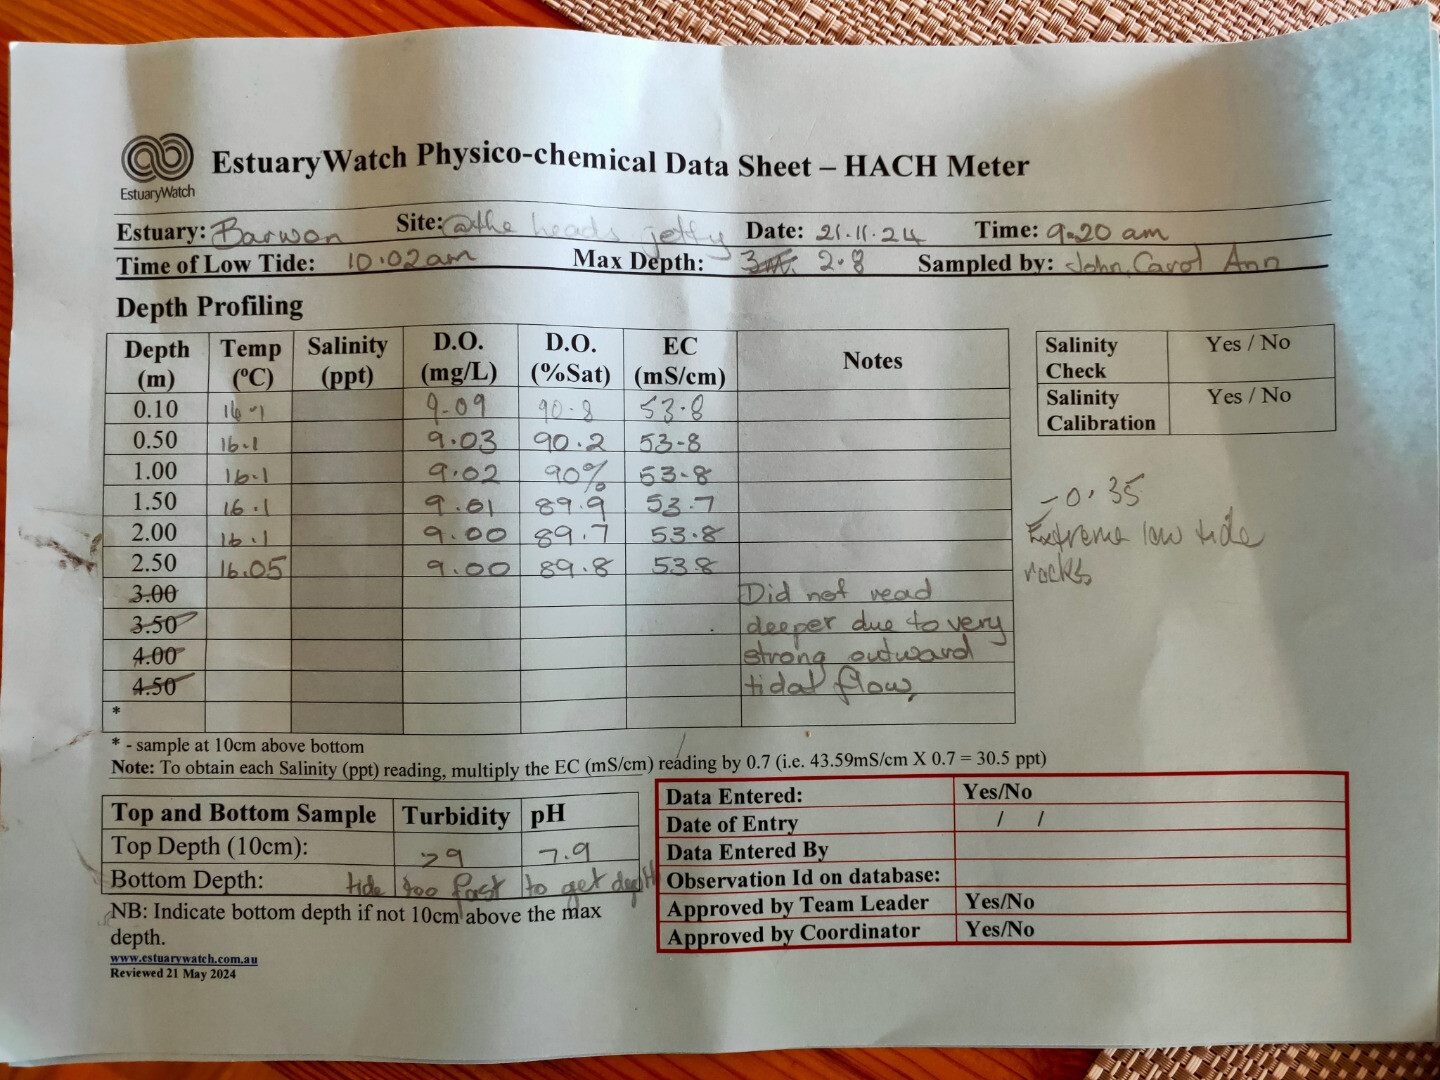 EstuaryWatch
EstuaryWatch Physico-chemical Data Sheet – HACH Meter
Estuary: Barwon Site: @the heads jetty Date: 21.11.24 Time: 9.20 am
Time of Low Tide: 10.02am Max Depth: 3m. 2.8 Sampled by: John, Carol Ann
Depth Profiling
Depth (m) Temp (ºC) Salinity (ppt) D.O. (mg/L) D.O. (%Sat) EC (mS/cm) Notes
0.10 16.1 9.09 90.8 53.8
0.50 16.1 9.03 90.2 53-8
1.00 16.1 9.02 90% 53.8
1.50 16.1 9.01 89.9 53.7
2.00 16.1 9.00 89.7 53.8
2.50 16.05 9.00 89.8 53.8
3.00 Did not read
3.50 deeper due to very
4.00 strong outward
4.50 tidal flow,
*
Salinity Check Yes / No
Salinity Calibration Yes / No
-0.35
Extreme low tide
rocks
* - sample at 10cm above bottom
Note: To obtain each Salinity (ppt) reading, multiply the EC (mS/cm) reading by 0.7 (i.e. 43.59mS/cm X 0.7 = 30.5 ppt)
Top and Bottom Sample Turbidity pH
Top Depth (10cm): >9 7.9
Bottom Depth: tide too fast to get depth
NB: Indicate bottom depth if not 10cm above the max
depth.
www.estuarywatch.com.au
Reviewed 21 May 2024
Data Entered: Yes/No
Date of Entry / /
Data Entered By
Observation Id on database:
Approved by Team Leader Yes/No
Approved by Coordinator Yes/No